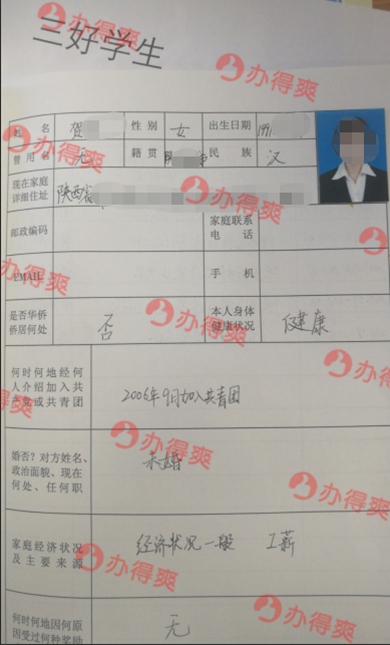 三好学生
姓 名 贺 性 别 女 出生日期 199
曾 用 名 无 籍 贯 民 族 汉
现在家庭
详细住址 陕西省
邮政编码 家庭联系
电 话
EMAIL 手 机
是否华侨
侨居何处 否 本人身体
健康状况 健康
何时何地经何
人介绍加入共
产党或共青团 2006年9月加入共青团
婚否？对方姓名、
政治面貌、现在
何处、任何职 未婚
家庭经济状况
及主要来源 经济状况一般 工薪
何时何地因何原
因受过何种奖励 无
办得爽
办得爽
办得爽
办得爽
办得爽
办得爽
办得爽
办得爽
办得爽
办得爽